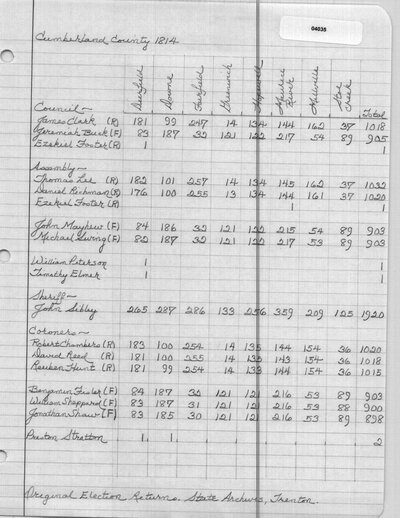 04035
Cumberland County 1814
Deerfield Downe Fairfield Greenwich Hopewell Maurice River Millville Stoe Creek Total
Council~
James Clark (R) 181 99 247 14 134 144 162 37 1018
Jeremiah Buck (F) 83 187 32 121 122 217 54 89 905
Ezekiel Foster (R) 1 1
Assembly~
Thomas Lee (R) 182 101 257 14 134 145 162 37 1032
Daniel Richman (R) 176 100 255 13 134 144 161 37 1020
Ezekiel Foster (R) 1 1
John Mayhew (F) 84 186 32 121 122 215 54 89 903
Michael Swing (F) 82 187 32 121 122 217 53 89 903
William Peterson 1 1
Timothy Elmer 1 1
Sheriff~
John Sibley 265 287 286 133 256 359 209 125 1920
Coroners~
Robert Chambers (R) 183 100 254 14 135 144 154 36 1020
David Reed (R) 181 100 255 14 135 143 154 36 1018
Reuben Hunt (R) 181 99 254 14 133 144 154 36 1015
Benjamin Fisler (F) 84 187 32 121 121 216 53 89 903
William Sheppard (F) 83 187 31 121 121 216 53 88 900
Jonathan Shaw (F) 83 185 30 121 121 216 53 89 898
Preston Stratton 1 1 2
Original Election Returns. State Archives, Trenton.